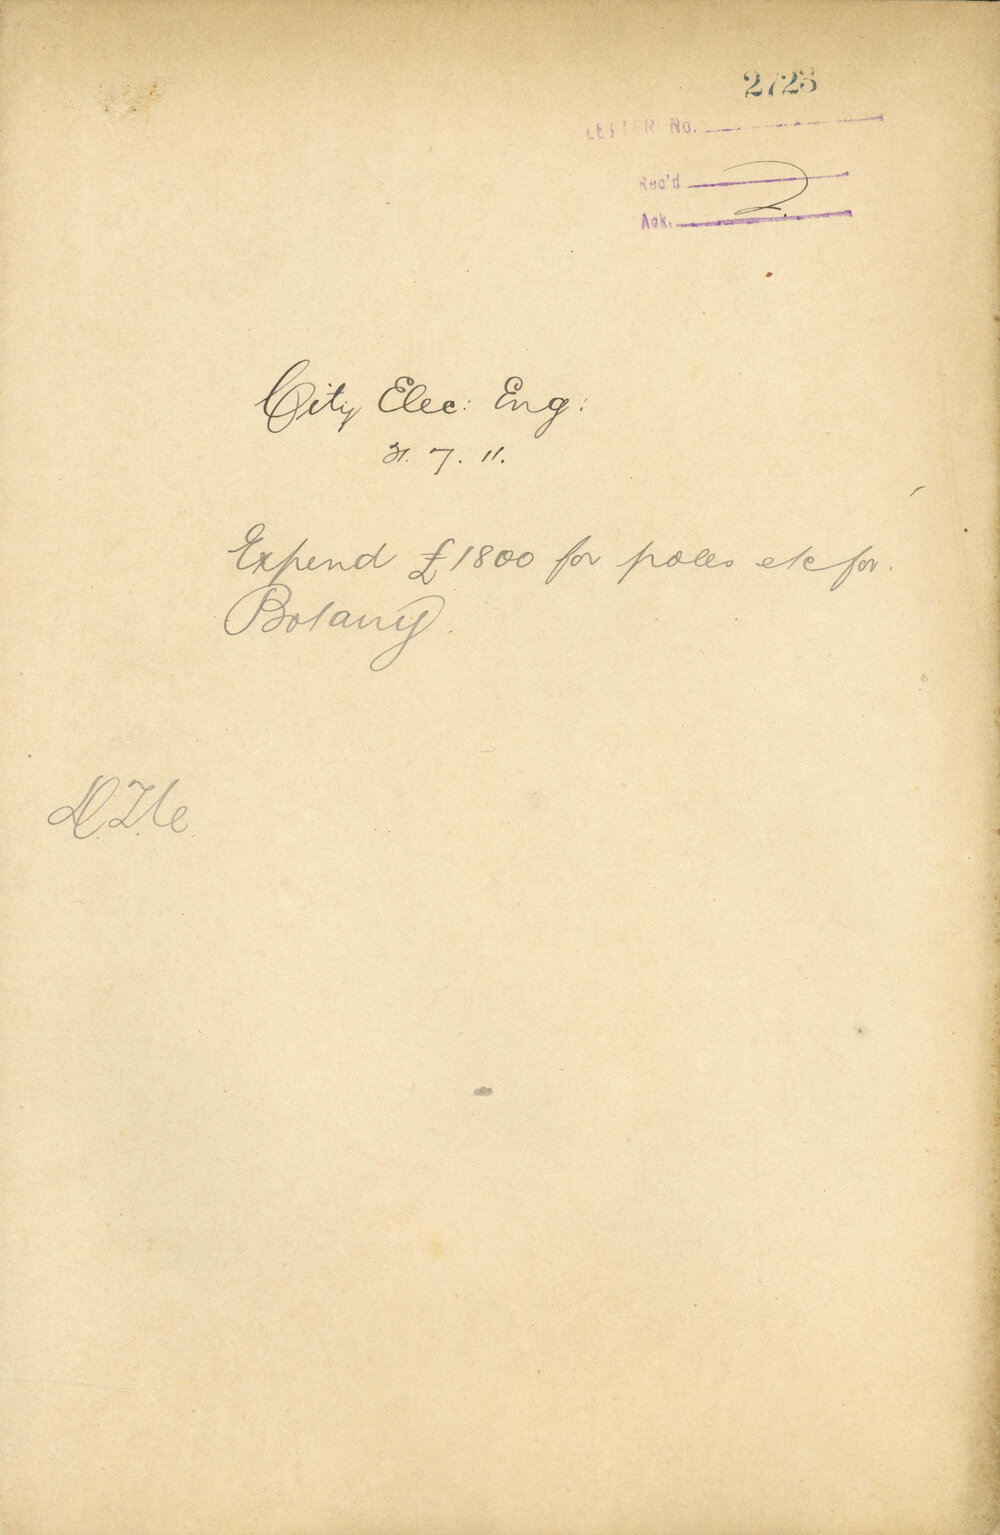 2723
LETTER No.
Rec'd
Ack.
City Elec: Eng:
31. 7. 11.
Expend £1800 for poles etc for
Botany.